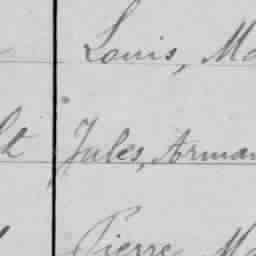 Louis, Ma
lt Jules, Arman
Pierre Ma